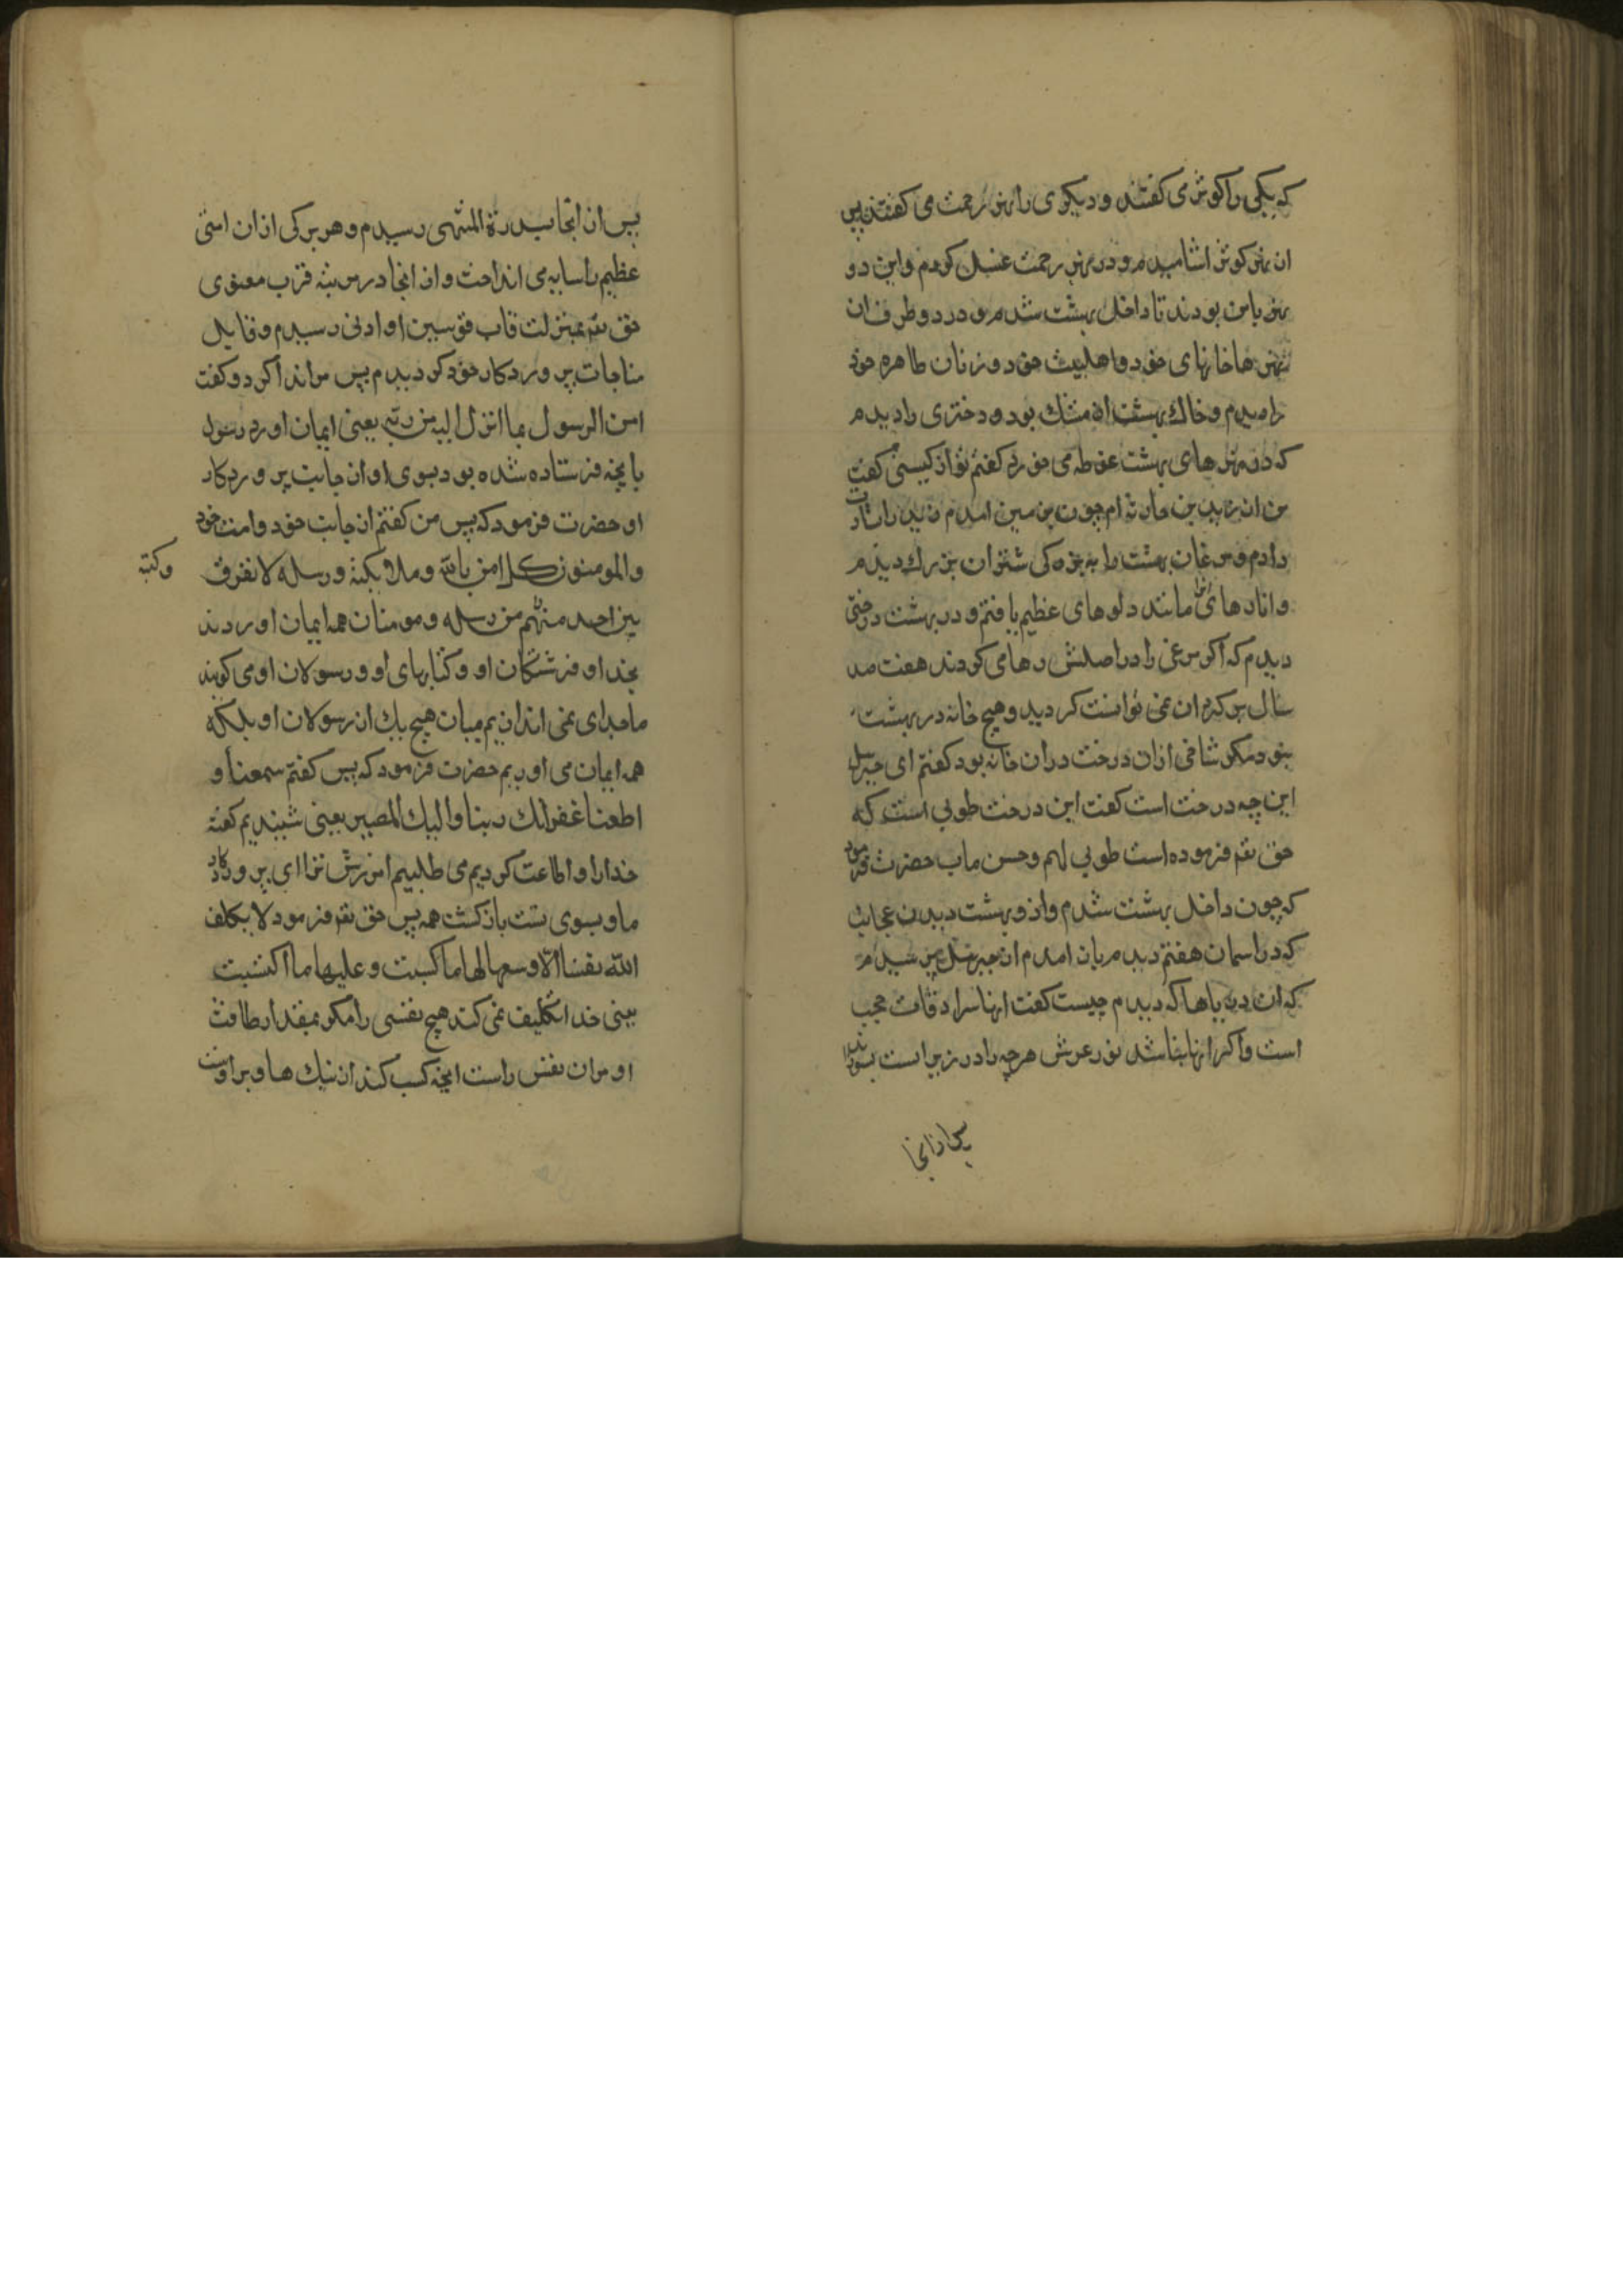 که یکی را کوثر می کفتند و دیکری را نهر رحمت می کفتند پس
از نهر کوثر اشامیدم و در نهر رحمت غسل کردم و این دو
نهر با من بودند تا داخل بهشت شدم و در دو طرف ان
نهرها خانهای خود و اهلبیت خود و زنان طاهره خود
را دیدم و خاک بهشت از مشک بود و دختری را دیدم
که در نهرهای بهشت غوطه می خورد کفتم تو از کیستی کفت
من از زید بن حارثه ام چون بزمین امدم زید را بشارت
دادم و مرغان بهشت را به بزرکی شتران بزرک دیدم
و انارهای مانند دلوهای عظیم یافتم و در بهشت درختی
دیدم که اکر مرغی را در اصلش رها می کردند هفت صد
سال بر کرد ان نمی توانست کردید و هیچ خانه در بهشت
نبود مکر شاخی ازان درخت دران خانه بود کفتم ای جبرئیل
این چه درخت است کفت این درخت طوبی است که
حق تعم فرموده است طوبی لهم و حسن ماب حضرت فرمود
که چون داخل بهشت شدم و از و بهشت دیدن عجایب
که در اسمان هفتم دیدم بان امدم از جبرئیل پرسیدم
که ان دریاها که دیدم چیست کفت انها سرادقات حجب
است و اکر انها نباشد نور عرش هرچه را در زیر است بسوزاند
پس از انجا
پس از انجا بسدرة المنتهی رسیدم و هر برکی ازان امتی
عظیم را سایه می انداخت و از انجا در مرتبه قرب معنوی
حق تعم بمنزلت قاب قوسین او ادنی رسیدم و قایل
مناجات پروردکار خود کردیدم پس مرا ندا کرد و کفت
امن الرسول بما انزل الیه من ربه یعنی ایمان اورد رسول
بانچه فرستاده شده بود بسوی او از جانب پروردکار
او حضرت فرمود که پس من کفتم از جانب خود و امت خود
والمومنون کل امن بالله و ملایکته و رسله لا نفرق
وکتبه
بین احد منهم من رسله و مومنان همه ایمان اوردند
بخدا و فرشتکان او و کتابهای او و رسولان او می کویند
ما جدای نمی اندازیم میان هیچ یک از رسولان او بلکه
همه ایمان می اوریم حضرت فرمود که پس کفتم سمعنا و
اطعنا غفرانک ربنا والیک المصیر یعنی شنیدیم کفته
خدا را و اطاعت کردیم می طلبیم امرزش ترا ای پروردکار
ما و بسوی تست بازکشت همه پس حق تعم فرمود لا یکلف
الله نفسا الا وسعها لها ما کسبت و علیها ما اکتسبت
یعنی خدا تکلیف نمی کند هیچ نفسی را مکر بمقدار طاقت
او مران نفس راست انچه کسب کند از نیک ها و براوست